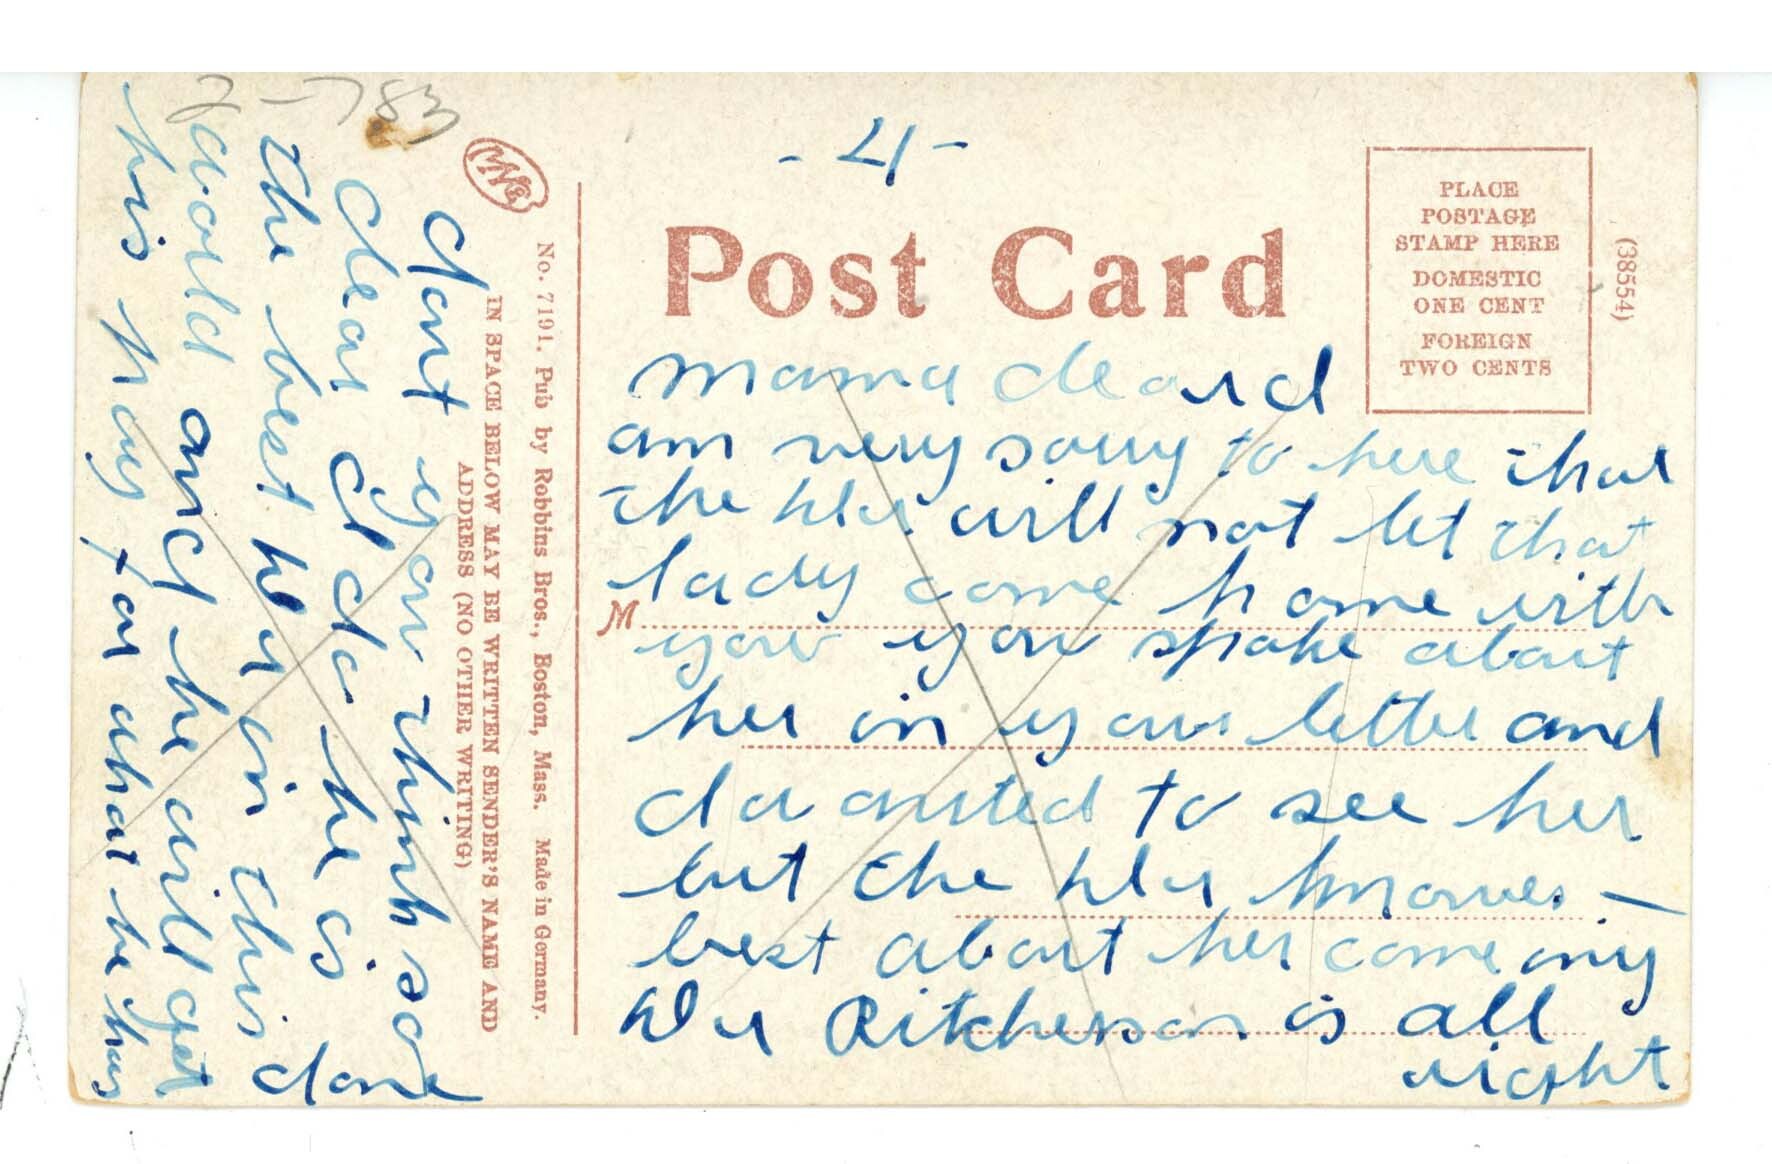 - 4 -
Post Card
PLACE
POSTAGE
STAMP HERE
DOMESTIC
ONE CENT
FOREIGN
TWO CENTS
(38554)
mama dear d
am very sorry to here that
the will not let that
lady come home with
M
you you spoke about
her in your letter and
I wanted to see her
but the knowes —
best about her come ing
Ritcherson is all
right
No. 7191. Pub by Robbins Bros., Boston, Mass. Made in Germany.
IN SPACE BELOW MAY BE WRITTEN SENDER'S NAME AND
ADDRESS (NO OTHER WRITING)
dont you think so
dear I do he is
the best boy in this
world and he will get
his pay for what he has
done
783